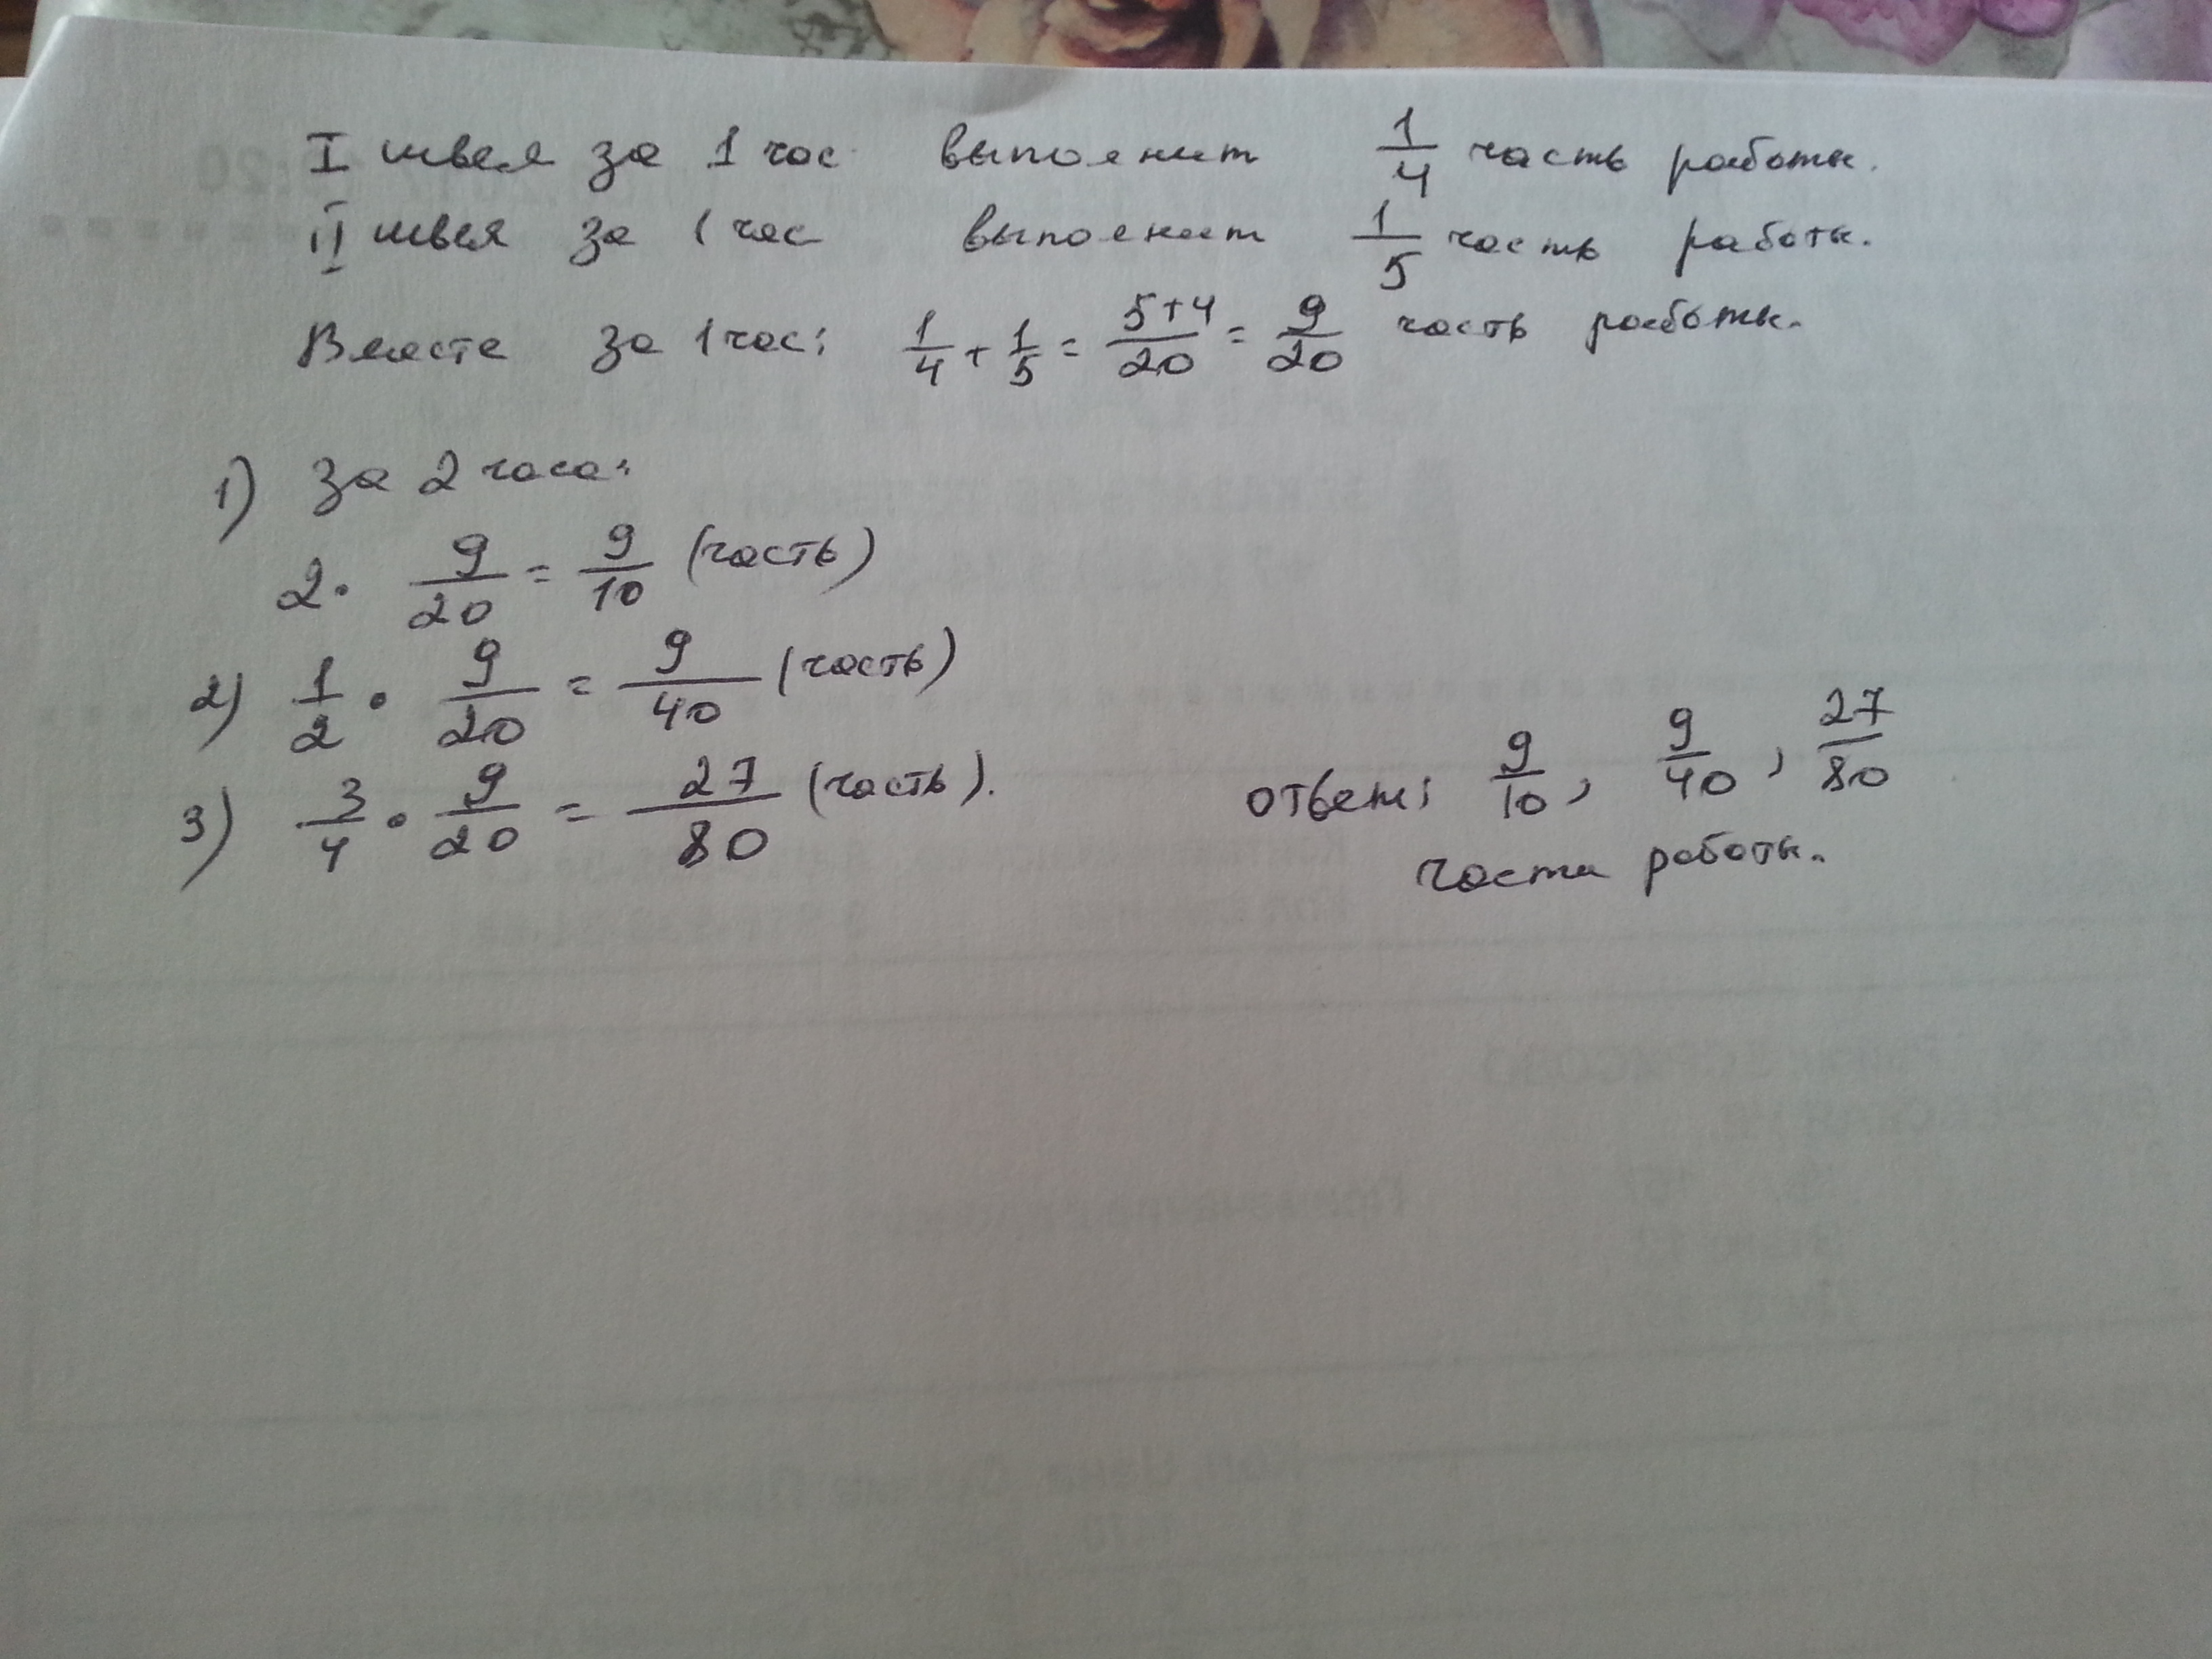 I швея за 1 час выполнит 1/4 часть работы.
II швея за 1 час выполнит 1/5 часть работы.
Вместе за 1 час: 1/4 + 1/5 = 5+4/20 = 9/20 часть работы.
1) За 2 часа:
2 · 9/20 = 9/10 (часть)
2) 1/2 · 9/20 = 9/40 (часть)
3) 3/4 · 9/20 = 27/80 (часть).
ответ: 9/10, 9/40, 27/80
части работы.